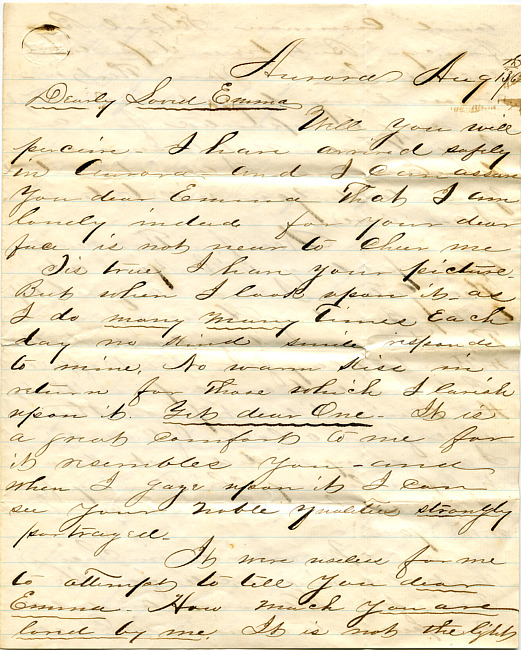 Aurora Aug
Dearly Loved Emma
Well you will
perceive I have arrived safely
in Aurora and I can assure
You dear Emma That I am
lonely indeed for your dear
face is not near to cheer me
Tis true I have your picture
But when I look upon it as
I do many many times Each
day no kind smile responds
to mine. No warm Kiss in
return for those which I lavish
upon it. Yet dear One - It is
a great comfort to me for
it resembles You - and
when I gaze upon it I can
see your noble qualities strongly
portrayed.
It were useless for me
to attempt to tell you dear
Emma - How much you are
loved by me. It is not the light